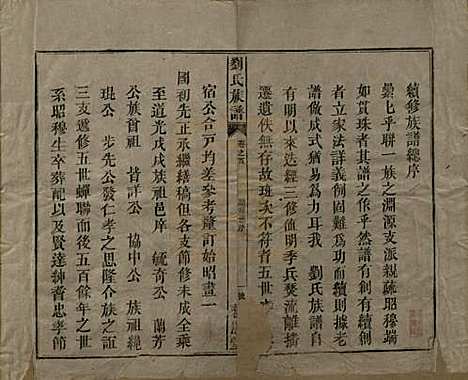 續修族譜總序
纍纍乎聯一族之淵源支派親疏昭穆端
如貫珠者其譜之作乎然譜有創有續創
者立家法詳義例固難為功而續則據老
譜做成式猶易為力耳我 劉氏族譜自
有明以來迭經三修值明季兵燹流離播
遷遺佚無存故班次不符者五世
劉氏族譜
宿公合三戶均差參考釐訂始昭畫一
國初先正承繼繕稿但各支節修未成全乘
至道光戊戌族祖邑庠 毓奇公 蘭芳
公族曾祖祥 公 協中公 族祖緄
琨公 步先公發仁孝之思隆合族之誼
三支遞修五世蟬聯而後五百餘年之世
系昭穆生卒葬配以及賢達紳耆忠孝節